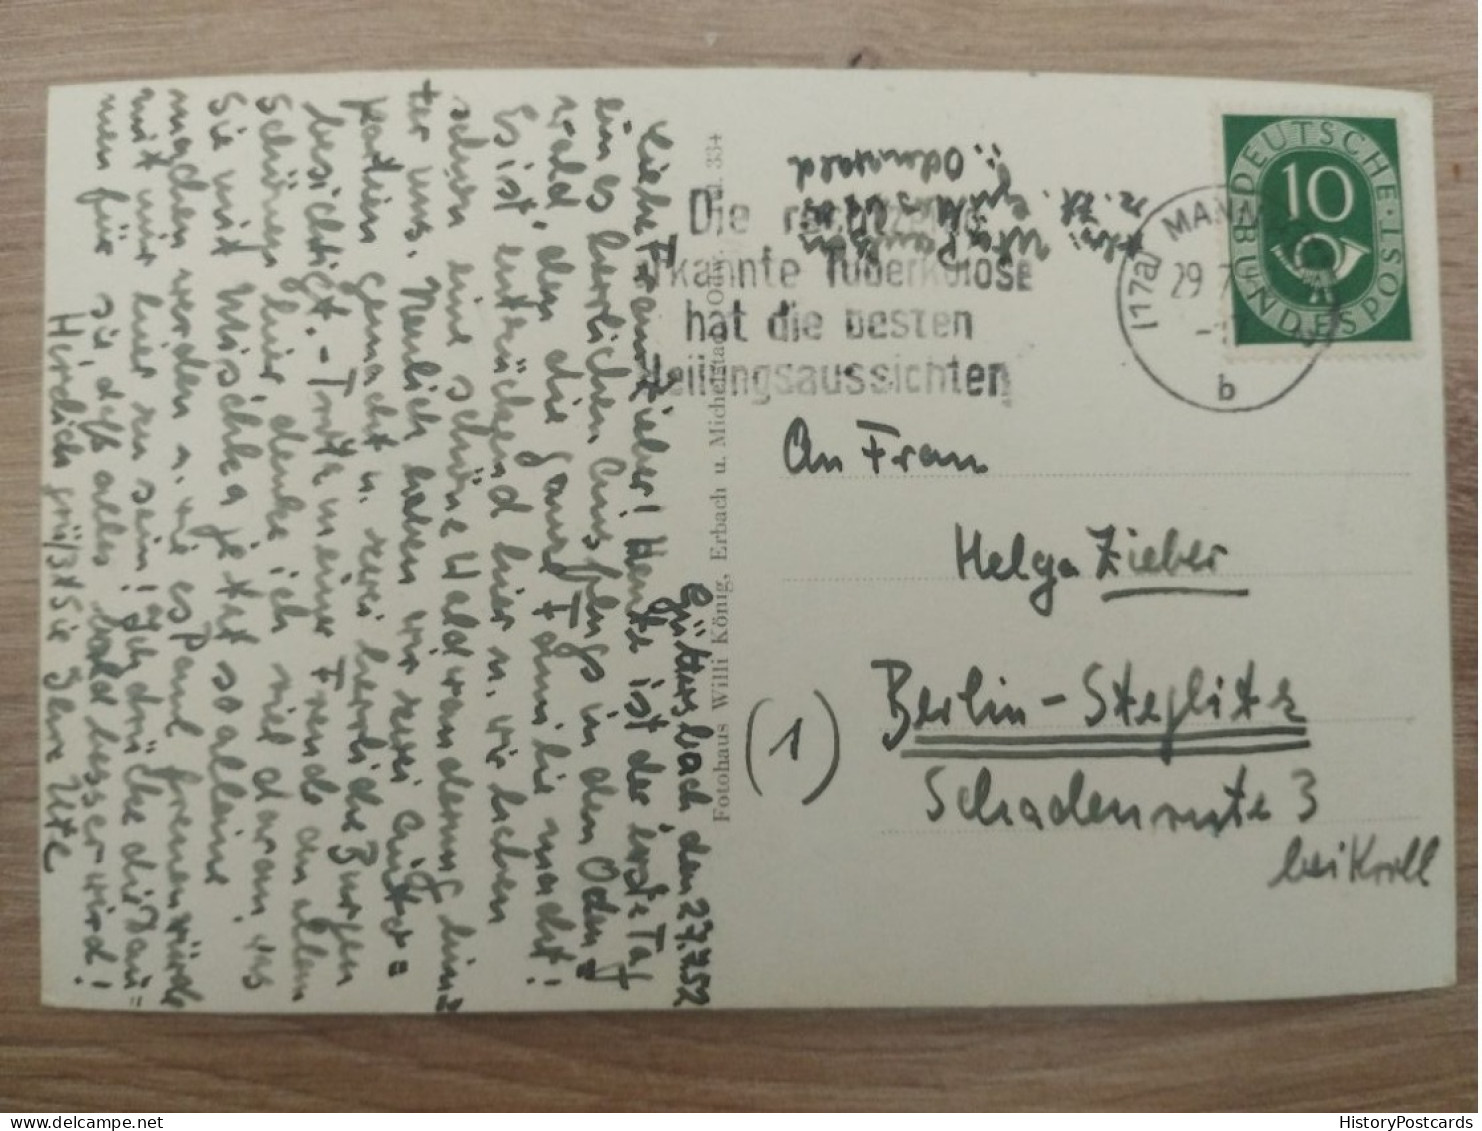 Güttersbach den 27.7.52
Liebe Frau Zieber! Heute ist der erste Tag
eines herrlichen Ausflugs in den Oden=
wald, den die ganze Familie macht!
Es ist entzückend hier u. wir haben
schon eine schöne Waldwanderung hin=
ter uns. Neulich haben wir zwei Auto=
partien gemacht u. zwei herrliche Burgen
besichtigt. - Trotz meiner Freude an allem
Schönen hier denke ich viel daran, was
Sie mit Mischka jetzt so alleine
machen werden u. wie es Paul freuen würde
mit mir hier zu sein! Ich drücke die Dau=
men für Sie, daß alles bald besser wird!
Herzlich grüßt Sie Ihre Ute
Fotohaus Willi König, Erbach u. Michelstadt/Odw.
33+
Abs.: Ute Paulsen
z. Zt. Güttersbach
i. Odenwald
Die rechtzeitig
erkannte Tuberkulose
hat die besten
Heilungsaussichten
(17a) MANN
29 7
b
DEUTSCHE BUNDESPOST
10
An Frau
Helga Zieber
(1) Berlin-Steglitz
Schadenrute 3
bei Kroll